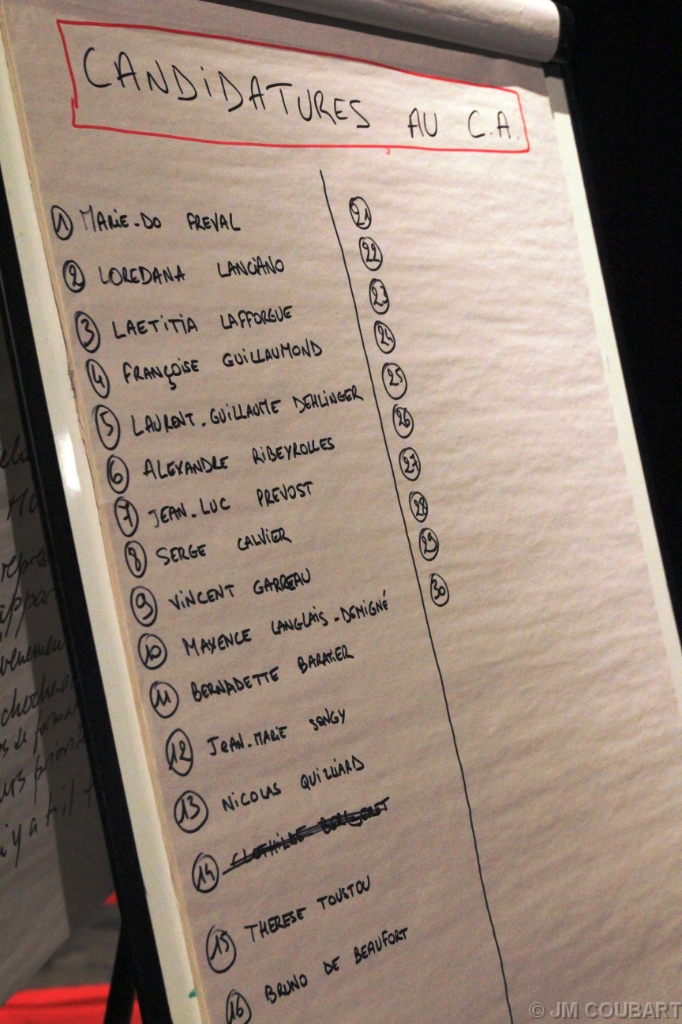 CANDIDATURES AU C.A.
1 MARIE-DO FREVAL
2 LOREDANA LANCIANO
3 LAETITIA LAFFORGUE
4 FRANÇOISE GUILLAUMOND
5 LAURENT-GUILLAUME DEHLINGER
6 ALEXANDRE RIBEYROLLES
7 JEAN-LUC PREVOST
8 SERGE CALVIER
9 VINCENT GARREAU
10 MAXENCE LANGLAIS-DEMIGNÉ
11 BERNADETTE BARATIER
12 JEAN-MARIE SONGY
13 NICOLAS QUILLIARD
14 CLOTHILDE
15 THERESE TOUSTOU
16 BRUNO DE BEAUFORT
21
22
23
24
25
26
27
28
29
30
© JM COUBART